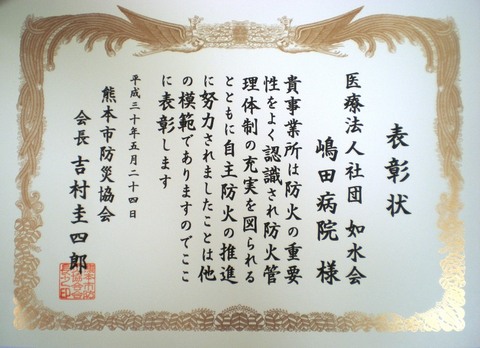 表彰状
医療法人社団 如水会
嶋田病院 様
貴事業所は防火の重要
性をよく認識され防火管
理体制の充実を図られる
とともに自主防火の推進
に努力されましたことは他
の模範でありますのでここ
に表彰します
平成三十年五月二十四日
熊本市防災協会
会長 吉村圭四郎